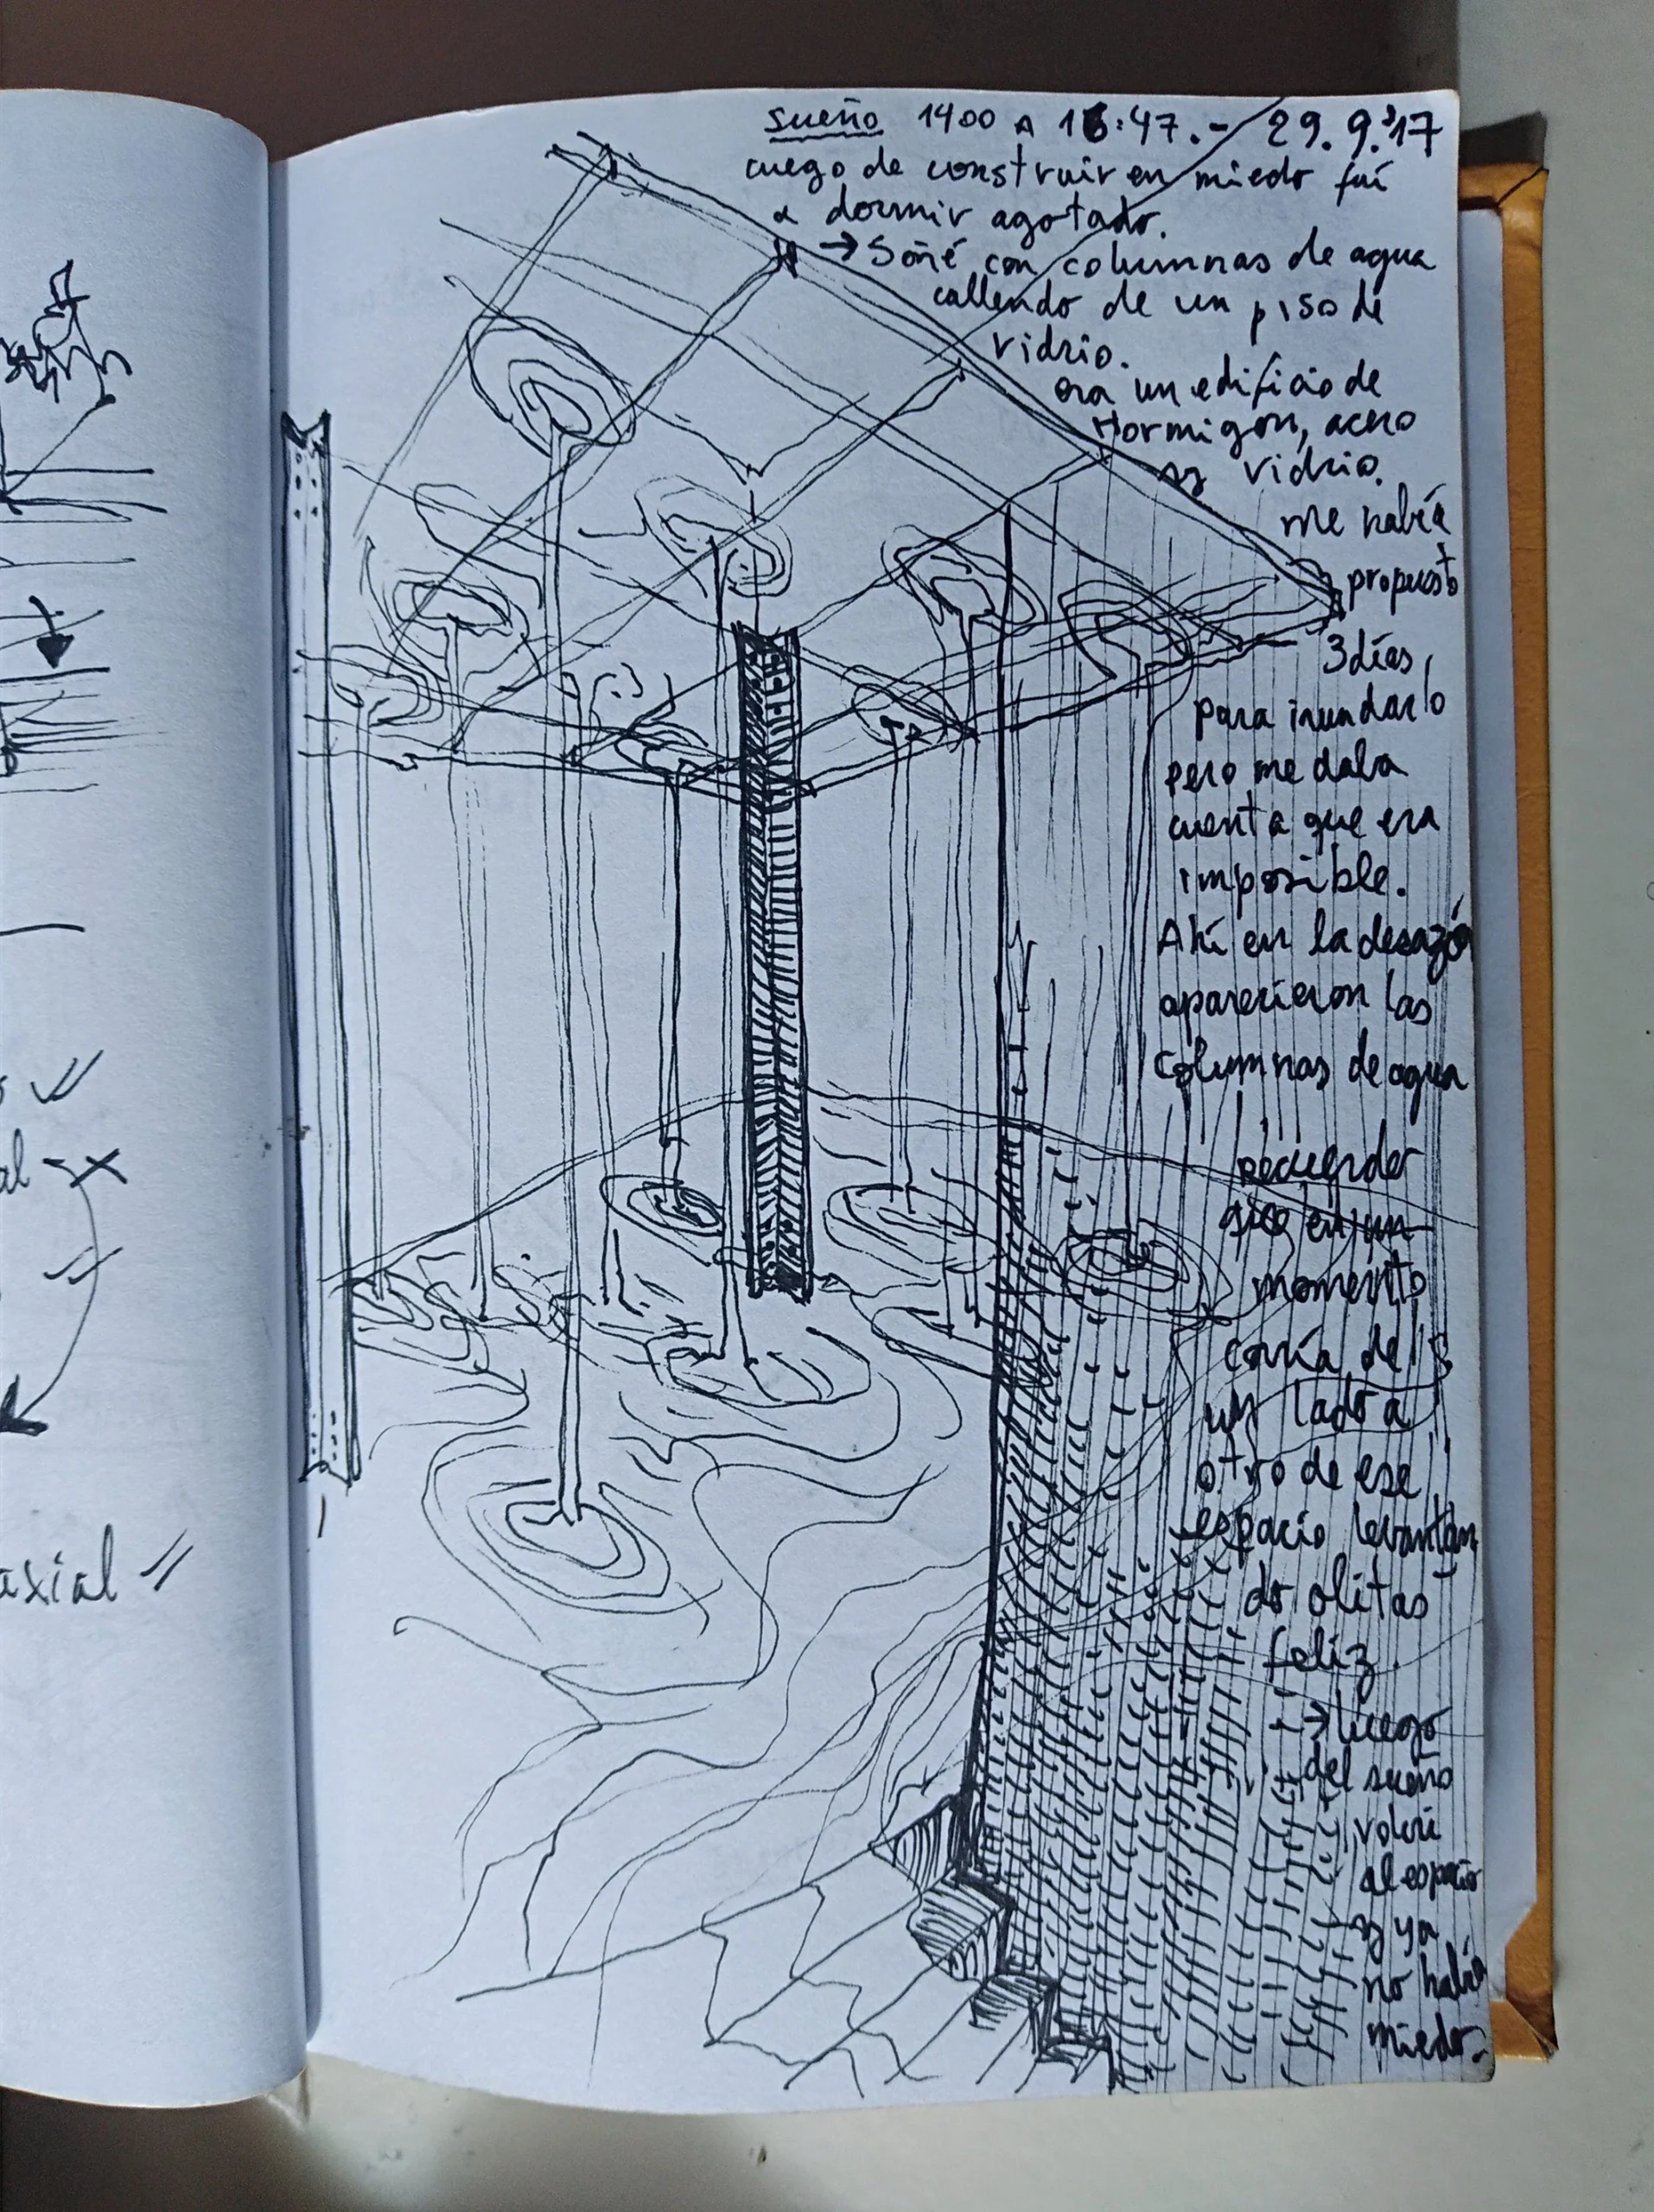 al
axial
sueño 1400 A 16:47.- 29.9.'17
luego de construir en miedo fuí
a dormir agotado.
→ Soñé con columnas de agua
callendo de un piso de
vidrio.
era un edificio de
Hormigon, acero
y vidrio.
Me había
propuesto
3 días,
para inundarlo
pero me daba
cuenta que era
imposible.
Ahí en la desazón
aparecieron las
columnas de agua
recuerdo
que en un
momento
corría de
un lado a
otro de ese
espacio levantan
do olitas
feliz.
→ luego
del sueño
volví
al espacio
y ya
no había
miedo.-